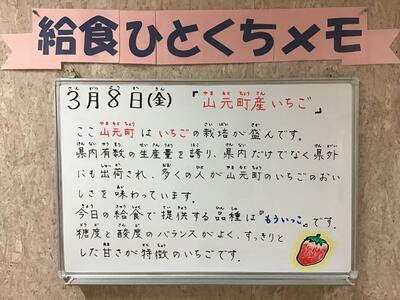 給食ひとくちメモ
3月8日(金) 「山元町産いちご」
ここ山元町はいちごの栽培が盛んです。
県内有数の生産量を誇り、県内だけでなく県外
にも出荷され、多くの人が山元町のいちごのおい
しさを味わっています。
今日の給食で提供する品種は『もういっこ』です。
糖度と酸度のバランスがよく、すっきりと
した甘さが特徴のいちごです。